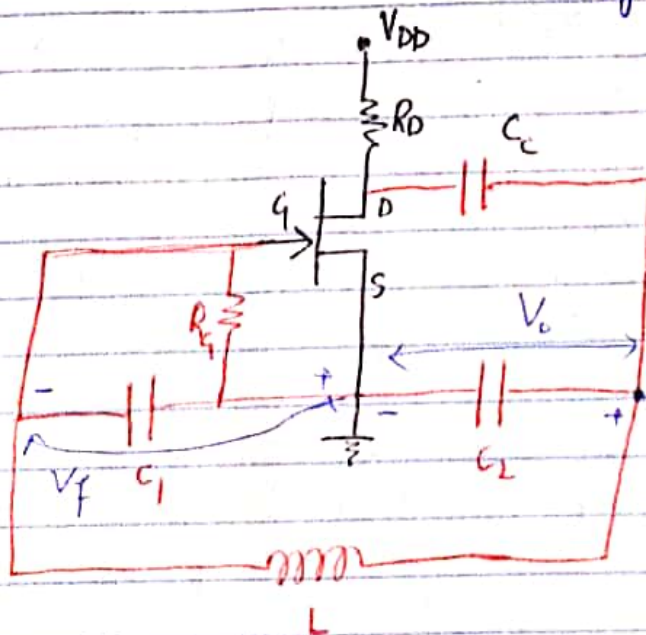 VDD
RD
Cc
G
D
S
RG
V₀
-
+
-
+
Vf
C₁
C₂
L